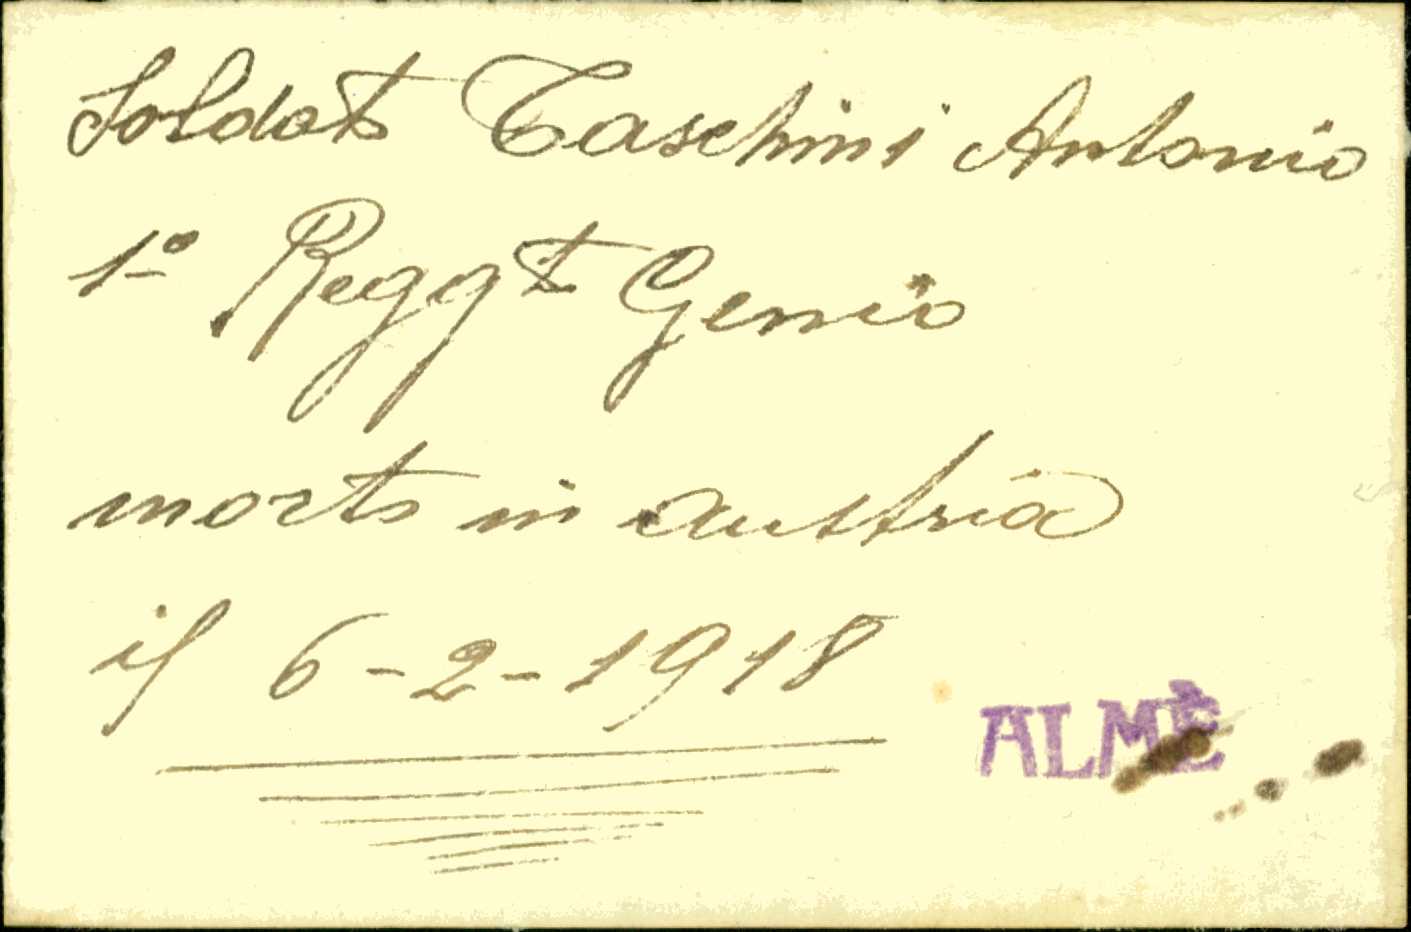 Soldato Taschini Antonio
1º Reggto Genio
morto in austria
il 6-2-1918
ALMÈ